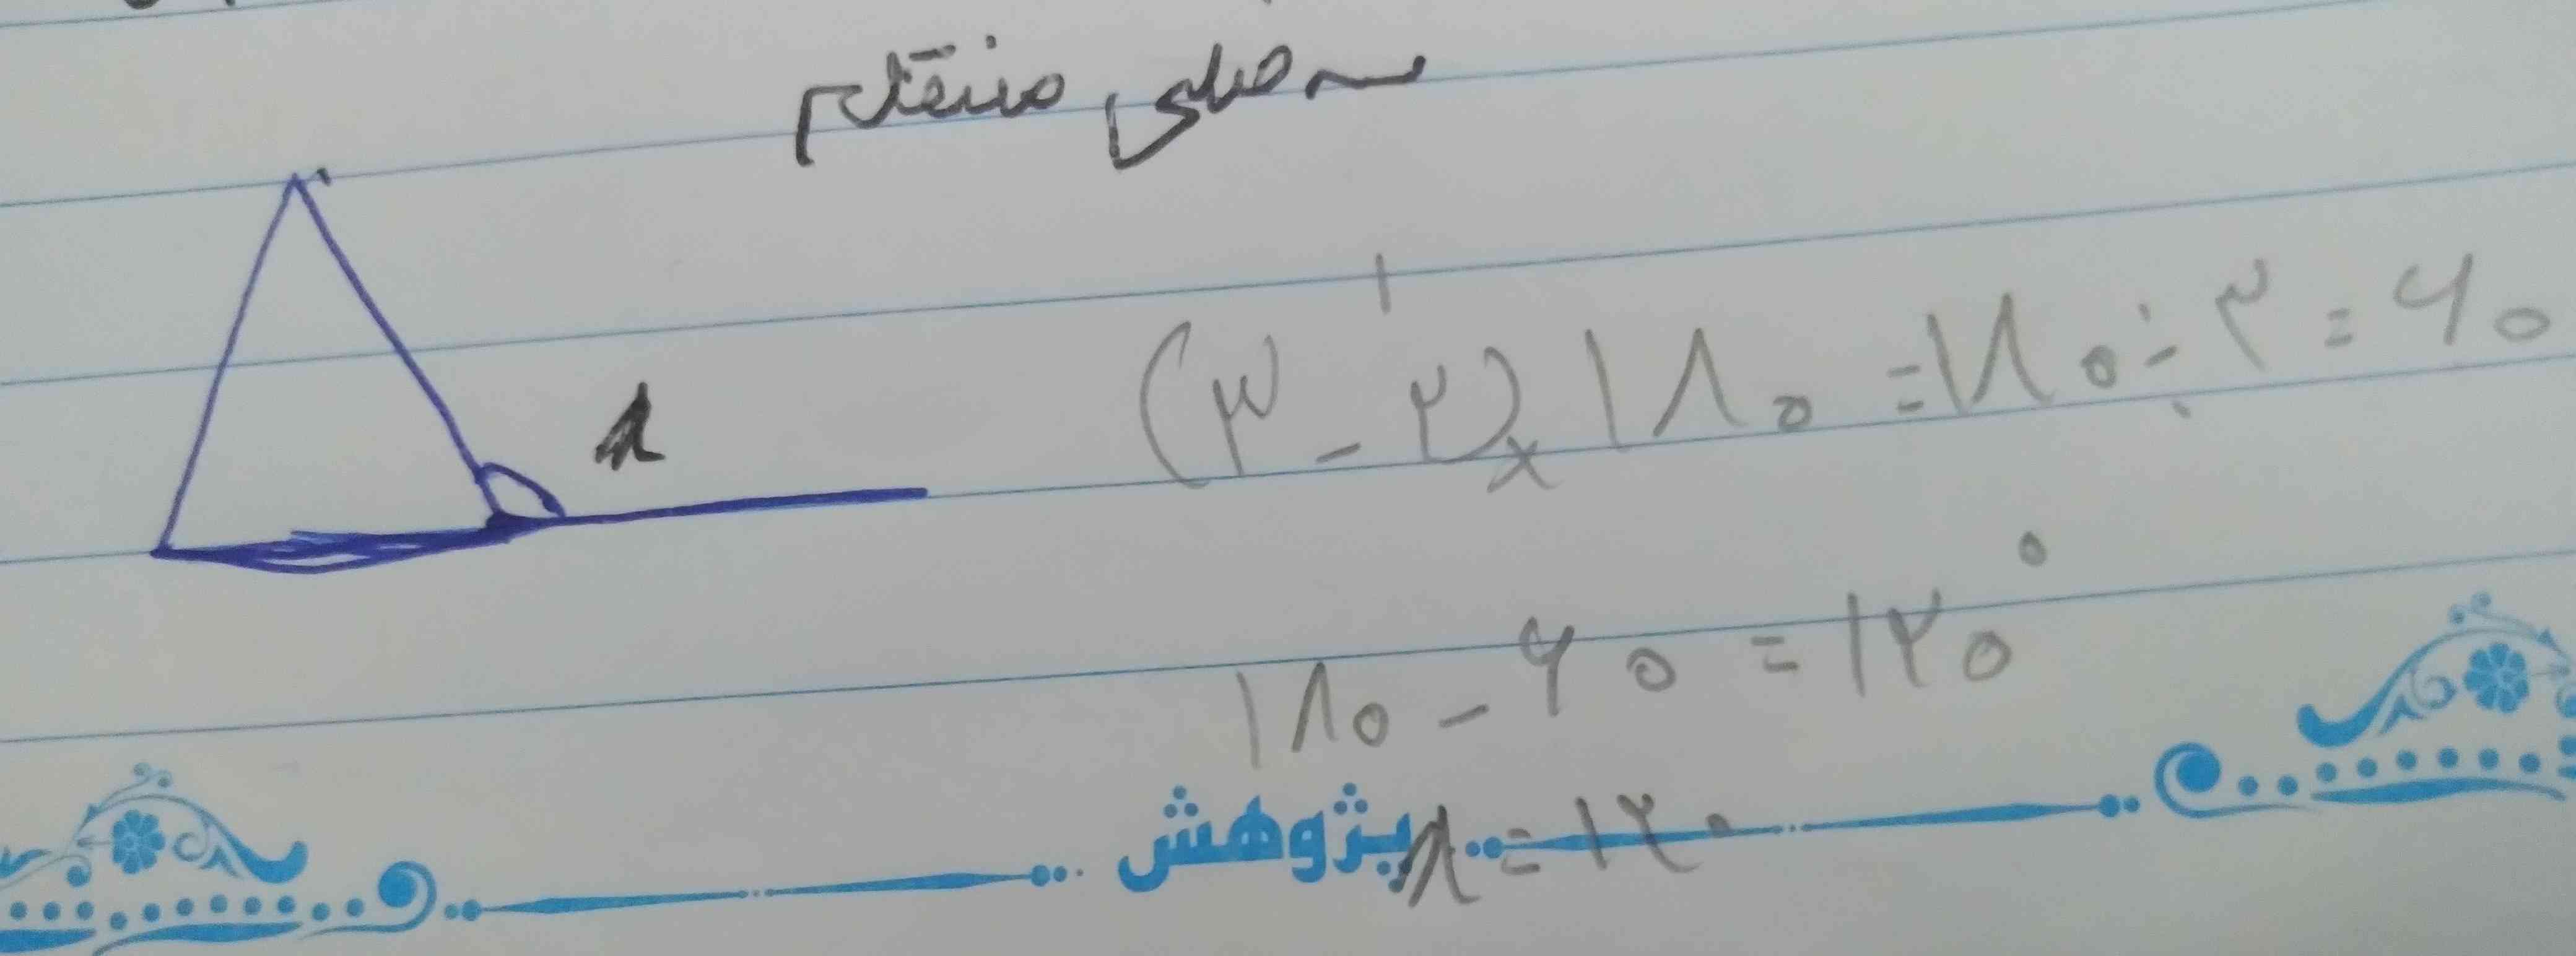 سه ضلعی منتظم
x
۱
(۳-۲)×۱۸۰=۱۸۰÷۳=۶۰
۱۸۰-۶۰=۱۲۰°
پژوهش
x=۱۲۰